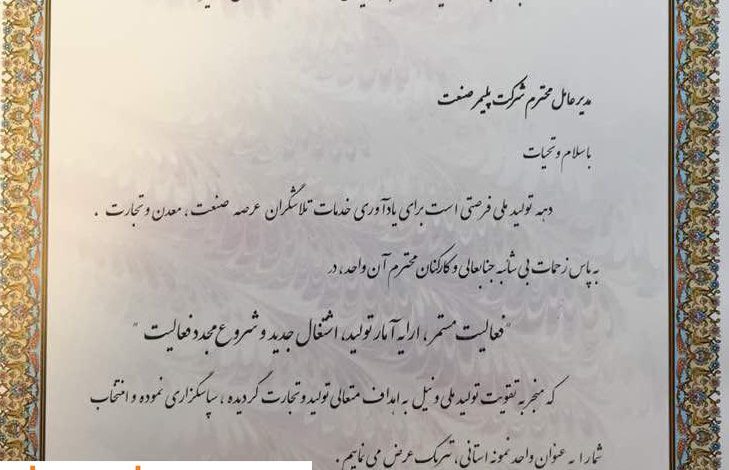 مدیرعامل محترم شرکت پلیمر صنعت
باسلام و تحیات
دهه تولید ملی فرصتی است برای یادآوری خدمات تلاشگران عرصه صنعت، معدن و تجارت .
به پاس زحمات بی شائبه جنابعالی و کارکنان محترم آن واحد، در
"فعالیت مستمر، ارایه آمار تولید، اشتغال جدید و شروع مجدد فعالیت"
که منجر به تقویت تولید ملی و نیل به اهداف متعالی تولید و تجارت گردیده، سپاسگزاری نموده و انتخاب
شما را به عنوان واحد نمونه استانی، تبریک عرض می نماییم .